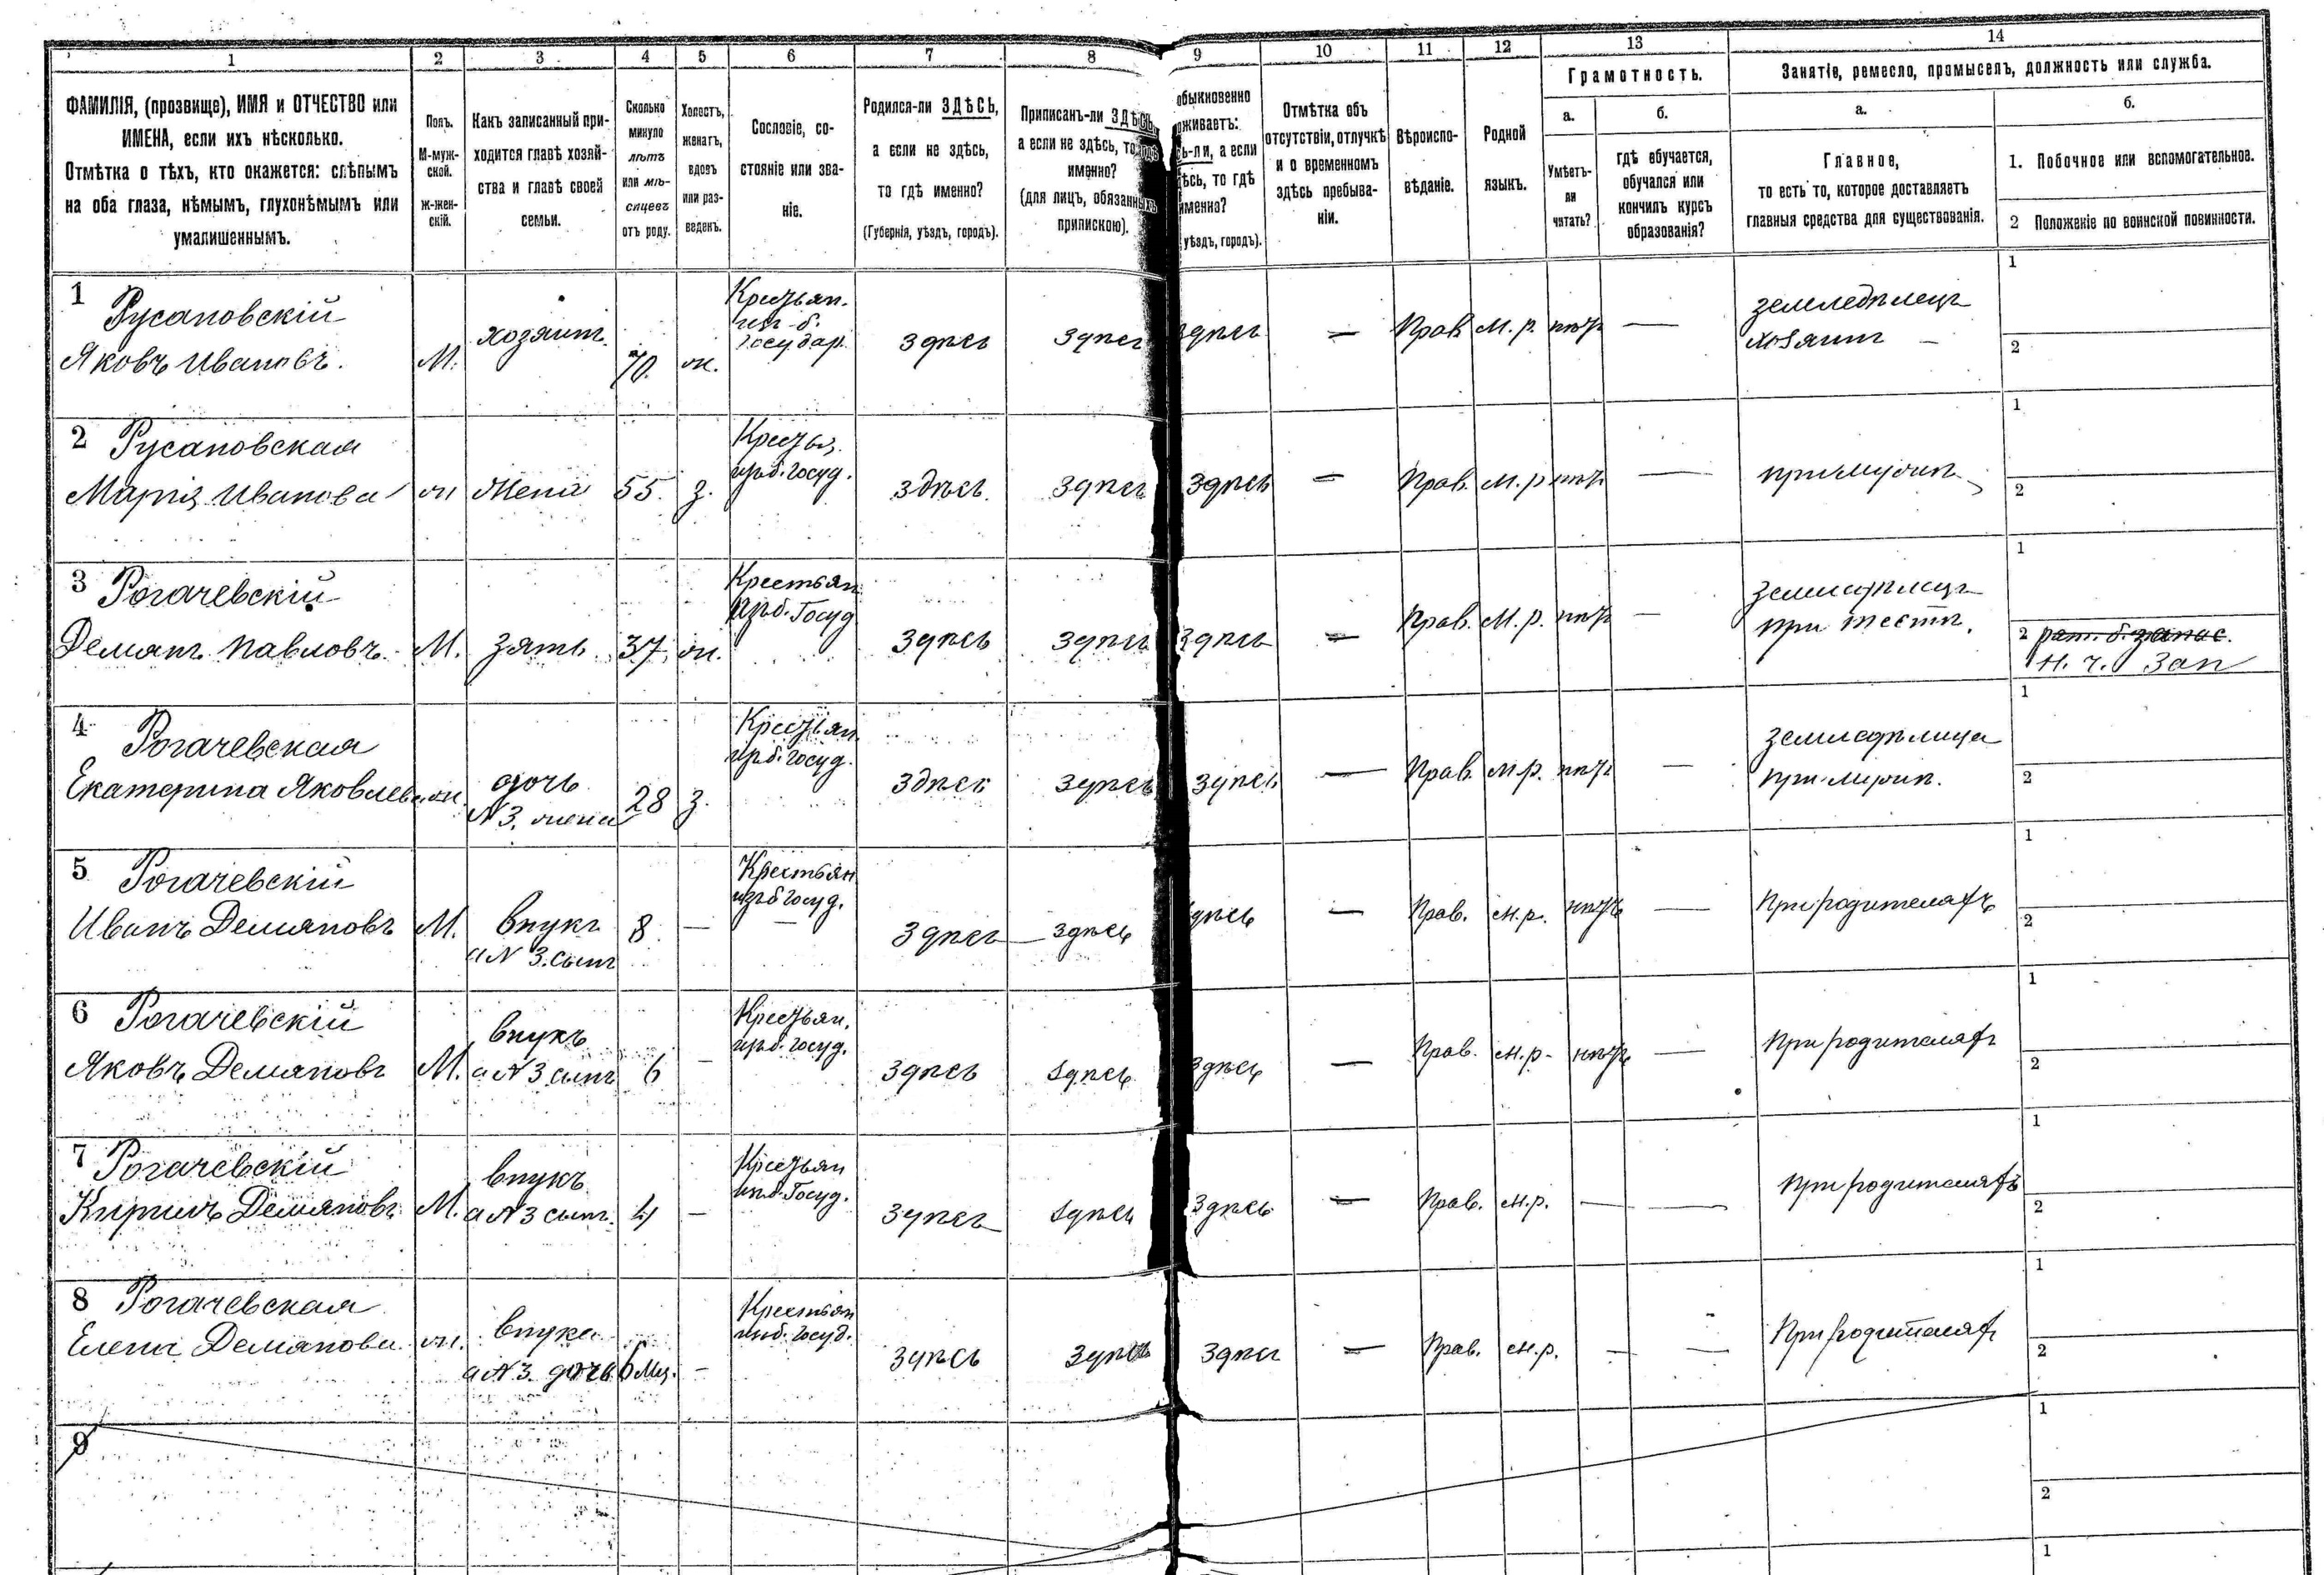 1 2 3 4 5 6 7 8 9 10 11 12 13 14
ФАМИЛІЯ, (прозвище), ИМЯ и ОТЧЕСТВО или
ИМЕНА, если ихъ нѣсколько.
Отмѣтка о тѣхъ, кто окажется: слѣпымъ
на оба глаза, нѣмымъ, глухонѣмымъ или
умалишеннымъ.
Полъ.
М-муж-
ской.
ж-жен-
скій.
Какъ записанный при-
ходится главѣ хозяй-
ства и главѣ своей
семьи.
Сколько
минуло
лѣтъ
или мѣ-
сяцевъ
отъ роду.
Холостъ,
женатъ,
вдовъ
или раз-
веденъ.
Сословіе, со-
стояніе или зва-
ніе.
Родился-ли ЗДѢСЬ,
а если не здѣсь,
то гдѣ именно?
(Губернія, уѣздъ, городъ).
Приписанъ-ли ЗДѢСЬ,
а если не здѣсь, то гдѣ
именно?
(для лицъ, обязанныхъ
припискою).
обыкновенно
оживаетъ:
сь-ли, а если
ѣсь, то гдѣ
именно?
уѣздъ, городъ).
Отмѣтка объ
отсутствіи, отлучкѣ
и о временномъ
здѣсь пребыва-
ніи.
Вѣроиспо-
вѣданіе.
Родной
языкъ.
Грамотность.
а.
Умѣетъ-
ли
читать?
б.
гдѣ обучается,
обучался или
кончилъ курсъ
образованія?
Занятіе, ремесло, промыселъ, должность или служба.
а.
Главное,
то есть то, которое доставляетъ
главныя средства для существованія.
б.
1. Побочное или вспомогательное.
2 Положеніе по воинской повинности.
1 Русановскій
Яковъ Ивановъ.
М.
хозяинъ
70.
ж.
Крестьян.
изъ б.
Государ
здѣсь
здѣсь
здѣсь
—
Прав
М. р.
нѣтъ
—
земледѣлецъ
хозяинъ —
1
2
2 Русановская
Марія Иванова
ж
Жена
55.
з.
Крестьян.
изъ б. госуд.
здѣсь
здѣсь
здѣсь
—
Прав.
М. р
нѣтъ
—
при мужѣ
1
2
3 Рогачевскій
Демянъ Павловъ
М.
зять
37
ж.
Крестьян
изъ б. Госуд
здѣсь
здѣсь
здѣсь
—
Прав.
М. р.
нѣтъ
—
земледѣлецъ
при тестѣ.
1
2 рат. б. запас.
Н. ч. Зап
4 Рогачевская
Екатерина Яковлева
ж.
дочь
№ 3. жена
28
з.
Крестьян
изъ б. госуд.
здѣсь
здѣсь
здѣсь
—
Прав.
М.р.
нѣтъ
—
земледѣлица
при мужѣ.
1
2
5 Рогачевскій
Иванъ Демяновъ
М.
внукъ
а № 3. сынъ
8
—
Крестьян
изъ б госуд.
здѣсь
здѣсь
здѣсь
—
Прав.
М.р.
нѣтъ
—
При родителяхъ
1
2
6 Рогачевскій
Яковъ Демяновъ
М.
внукъ
а № 3 сынъ
6
—
Крестьян.
изъ б. госуд.
здѣсь
здѣсь
здѣсь
—
Прав.
М.р.
нѣтъ
—
При родителяхъ
1
2
7 Рогачевскій
Кирилъ Демяновъ
М.
внукъ
а № 3 сынъ.
4
—
Крестьян
изъ б. Госуд.
здѣсь
здѣсь
здѣсь
—
Прав.
М.р.
—
—
При родителяхъ
1
2
8 Рогачевская
Елена Демянова
ж.
внука
а № 3. дочь
6 мц.
—
Крестьян
изъ б. госуд.
здѣсь
здѣсь
здѣсь
—
Прав.
М.р.
—
—
При родителяхъ
1
2
9
1
2
1